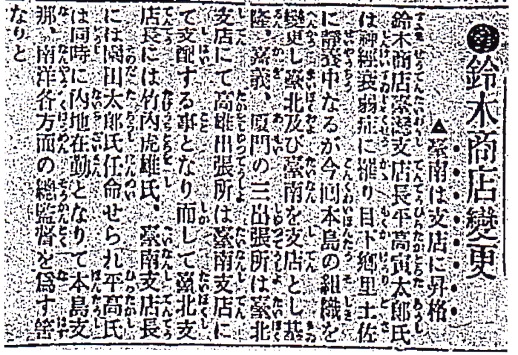 鈴木商店變更
▲臺南は支店に昇格
鈴木商店臺灣支店長平高寅太郎氏
は神經衰弱症に罹り目下鄕里土佐
に靜養中なるが今回本島の組織を
變更し臺北及び臺南を支店とし基
隆、嘉義、厦門の三出張所は臺北
支店にて高雄出張所は臺南支店に
て支配する事となり而して臺北支
店長には竹內虎雄氏、臺南支店長
には園田太郞氏任命せられ平高氏
は同時に內地在勤となりて本島支
那、南洋各方面の總監督を爲す筈
なりと